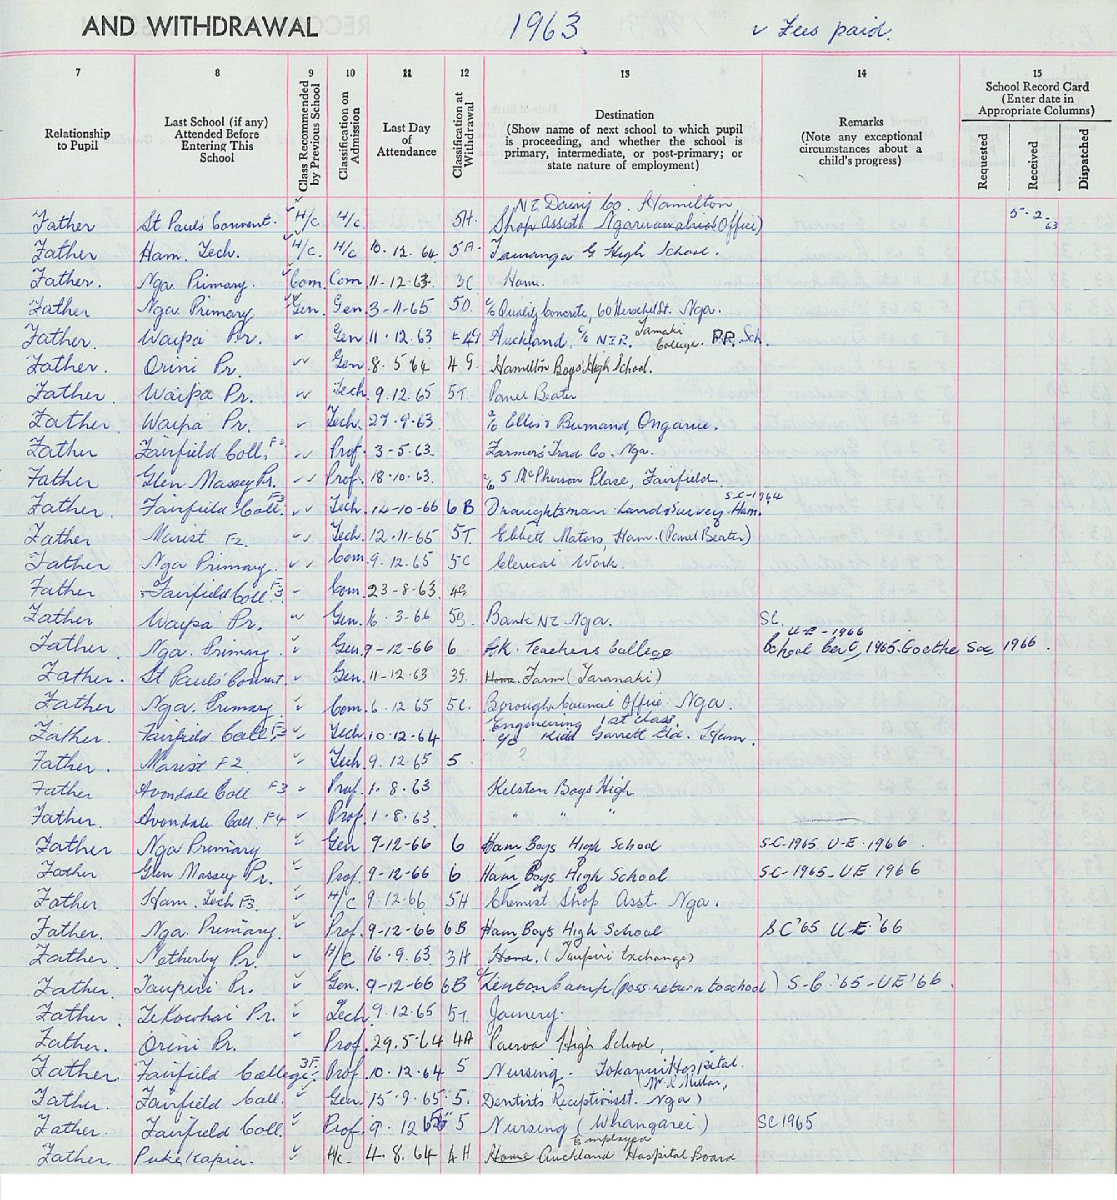 AND WITHDRAWAL 1963 ✓ Fees paid.
7 8 9 10 11 12 13 14 15
Relationship to Pupil
Last School (if any) Attended Before Entering This School
Class Recommended by Previous School
Classification on Admission
Last Day of Attendance
Classification at Withdrawal
Destination (Show name of next school to which pupil is proceeding, and whether the school is primary, intermediate, or post-primary; or state nature of employment)
Remarks (Note any exceptional circumstances about a child's progress)
School Record Card (Enter date in Appropriate Columns)
Requested Received Dispatched
N.Z. Dairy Co. Hamilton
Father St Pauls Convent. H/c. H/c. 5H. Shop Assist Ngaruawahia Office) 5-2-63
Father Ham. Tech. H/c. H/c 10.12.64 5A. Tauranga G High School.
Father. Nga Primary. Com. Com 11-12-63. 3C Home.
Father Nga. Primary Gen. Gen. 3-11-65 5D. c/o Quality Concrete, 60 Herschel St. Nga.
Father. Waipa Pr. ✓ Gen 11.12.63 4G Auckland, c/o N.Z.R. Tamaki College. P.P. Sch.
Father. Orini Pr. ✓✓ Gen. 8.5 64 4 G. Hamilton Boys High School.
Father. Waipa Pr. ✓ Tech. 9.12.65 5T Panel Beater
Father. Waipa Pr. ✓ Tech. 27-9-63. c/o Ellis & Burnand, Ongarue.
Father Fairfield Coll. F3 ✓✓ Prof. 3-5-63. Farmers Trad Co. Nga.
Father Glen Massey Pr. ✓✓ Prof. 18.10.63. c/o 5 McPherson Place, Fairfield.
Father Fairfield Coll. F3 ✓✓ Tech. 14-10-66 6B Draughtsman Land & Survey Ham. S.C-1964
Father Marist F2. ✓✓ Tech. 12.11.65 5T. Ebbett Motors, Ham. (Panel Beater)
Father Nga Primary. ✓✓ Com. 9.12.65 5C Clerical Work.
Father Fairfield Coll F3 ✓ Com. 23-8-63. 4G
Father Waipa Pr. ✓ Gen. 16.3.66 5G. Bank NZ Nga. SC.
Father. Nga. Primary ✓ Gen. 9-12-66 6 AK. Teachers College School Cert, 1965. Goethe Soc 1966. U-E-1966
Father. St Pauls' Convent. ✓ Gen. 11-12-63 3G. Home. Farm (Taranaki)
Father Nga. Primary ✓ Com. 6.12.65 5C. Borough Council Office Nga.
Father. Fairfield Coll. F3 ✓ Tech. 10-12-64 Engineering 1st class. c/o Kidd Garrett Ltd. Ham.
Father. Marist F2 ✓ Tech. 9.12.65 5. ?
Father Avondale Coll F3 ✓ Prof. 1.8.63 Kelston Boys High
Father. Avondale Coll. F4 ✓ Prof. 1.8.63. " " "
Father Nga Primary ✓ Gen 9-12-66 6 Ham Boys High School S.C-1965 U-E-1966
Father Glen Massey Pr. ✓ Prof. 9-12-66 6 Ham Boys High School S.C-1965-UE 1966
Father Ham. Tech F3. ✓ H/C 9.12.66 5H Chemist Shop Asst. Nga.
Father. Nga. Primary. ✓ Prof. 9-12-66 6B Ham Boys High School S.C '65 U-E '66
Father Netherby Pr. ✓ H/C 16.9.63 3H Home. (Taupiri Exchange)
Father Taupiri Pr. ✓ Gen. 9-12-66 6B c/o Linton Camp (poss return to school) S-C '65-UE '66.
Father. Te Kowhai Pr. ✓ Tech. 9.12.65 5T. Joinery.
Father. Orini Pr. ✓ Prof. 29.5.64 4A Paeroa High School.
Father Fairfield College. 3F. Prof. 10.12.64 5 Nursing. Tokanui Hospital.
Father. Fairfield Coll. ✓ Gen. 15-9.65. 5. Dentists Receptionist. Nga) (Mr. Millar,
Father. Fairfield Coll. ✓ Prof. 9.12 65 5 Nursing (Whangarei) SC 1965
Father. Pukekapia. ✓ H/c. 4.8.64 4H Home Employed Auckland Hospital Board